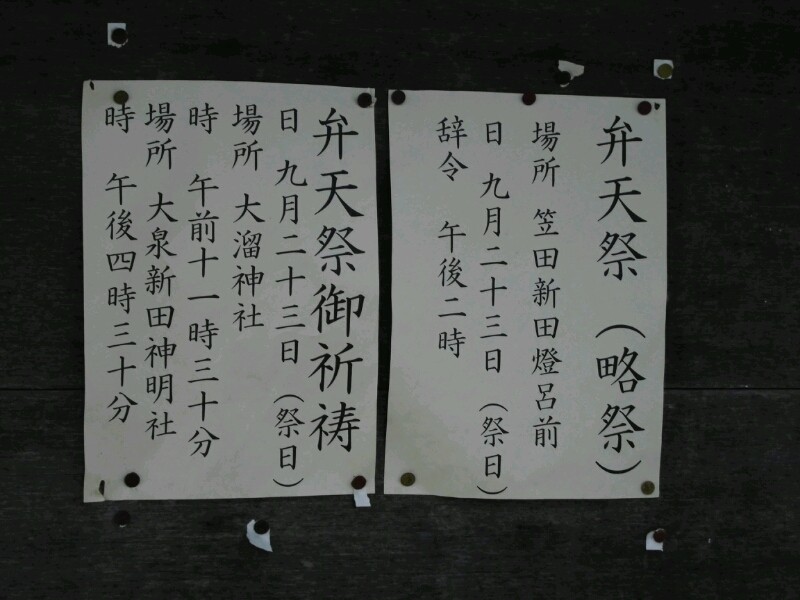 弁天祭（略祭）
場所 笠田新田燈呂前
日 九月二十三日（祭日）
辞令 午後二時
弁天祭御祈祷
日 九月二十三日（祭日）
場所 大溜神社
時 午前十一時三十分
場所 大泉新田神明社
時 午後四時三十分